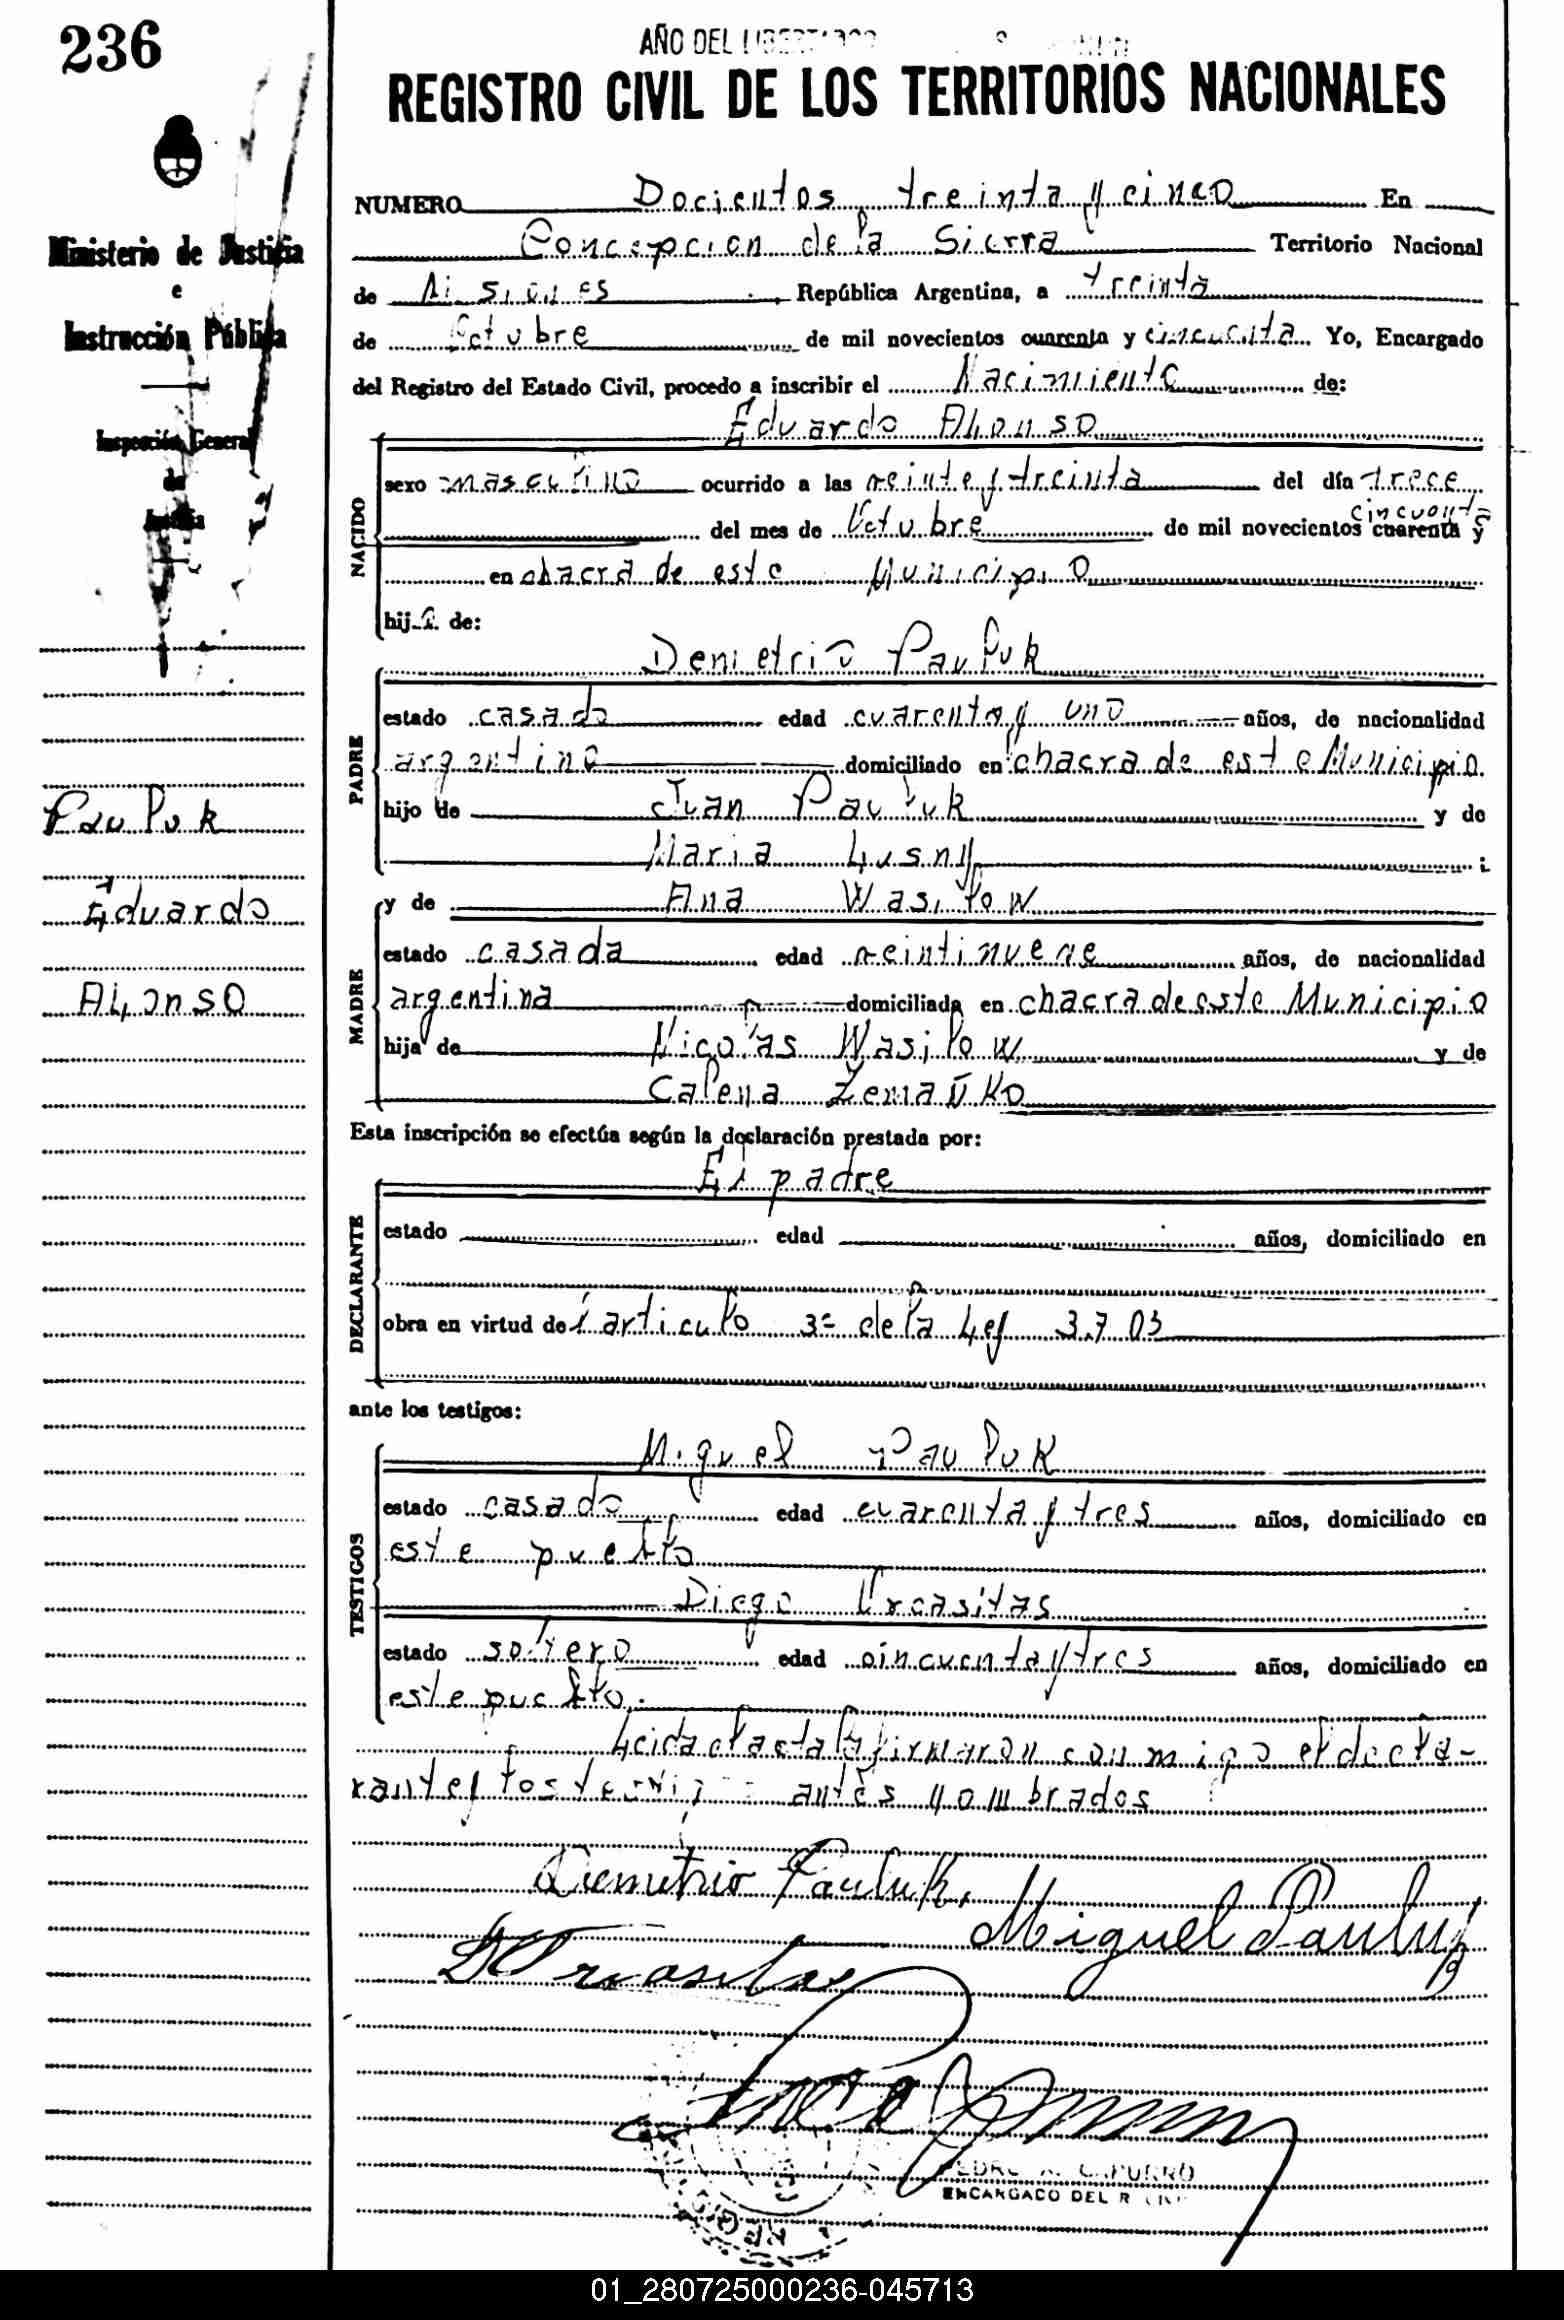 236
AÑO DEL LIBERTADOR
REGISTRO CIVIL DE LOS TERRITORIOS NACIONALES
Ministerio de Justicia
e
Instrucción Pública
Inspección General
de
Justicia
NUMERO Docientos treinta y cinco En
Concepcion de la Sierra Territorio Nacional
de Misiones, República Argentina, a treinta
de Octubre de mil novecientos cuarenta y cincuenta Yo, Encargado
del Registro del Estado Civil, procedo a inscribir el Nacimiento de:
Eduardo Alonso
NACIDO
sexo masculino ocurrido a las veinte y treinta del día trece
del mes de Octubre de mil novecientos cuarenta y cincuenta
en chacra de este Municipio
hijo de:
Demetrio Pauluk
PADRE
estado casado edad cuarenta y uno años, de nacionalidad
argentino domiciliado en chacra de este Municipio
hijo de Juan Pauluk y de
Maria Lusny ;
MADRE
y de Ana Wasilow
estado casada edad veintinueve años, de nacionalidad
argentina domiciliada en chacra de este Municipio
hija de Nicolas Wasilow y de
Calena Zemañko
Esta inscripción se efectúa según la declaración prestada por:
El padre
DECLARANTE
estado edad años, domiciliado en
obra en virtud del articulo 3º de la Ley 3703
ante los testigos:
TESTIGOS
Miguel Pauluk
estado casado edad cuarenta y tres años, domiciliado en
este pueblo
Diego Urcasitas
estado soltero edad cincuenta y tres años, domiciliado en
este pueblo.
Leida el acta la firmaron conmigo el decla-
rante y los testigos antes nombrados
Pauluk
Eduardo
Alonso
Demetrio Pauluk.
Miguel Pauluk
D Urcasitas
PEDRO A. CAPURRO
ENCARGADO DEL R. CIVIL
01_280725000236-045713